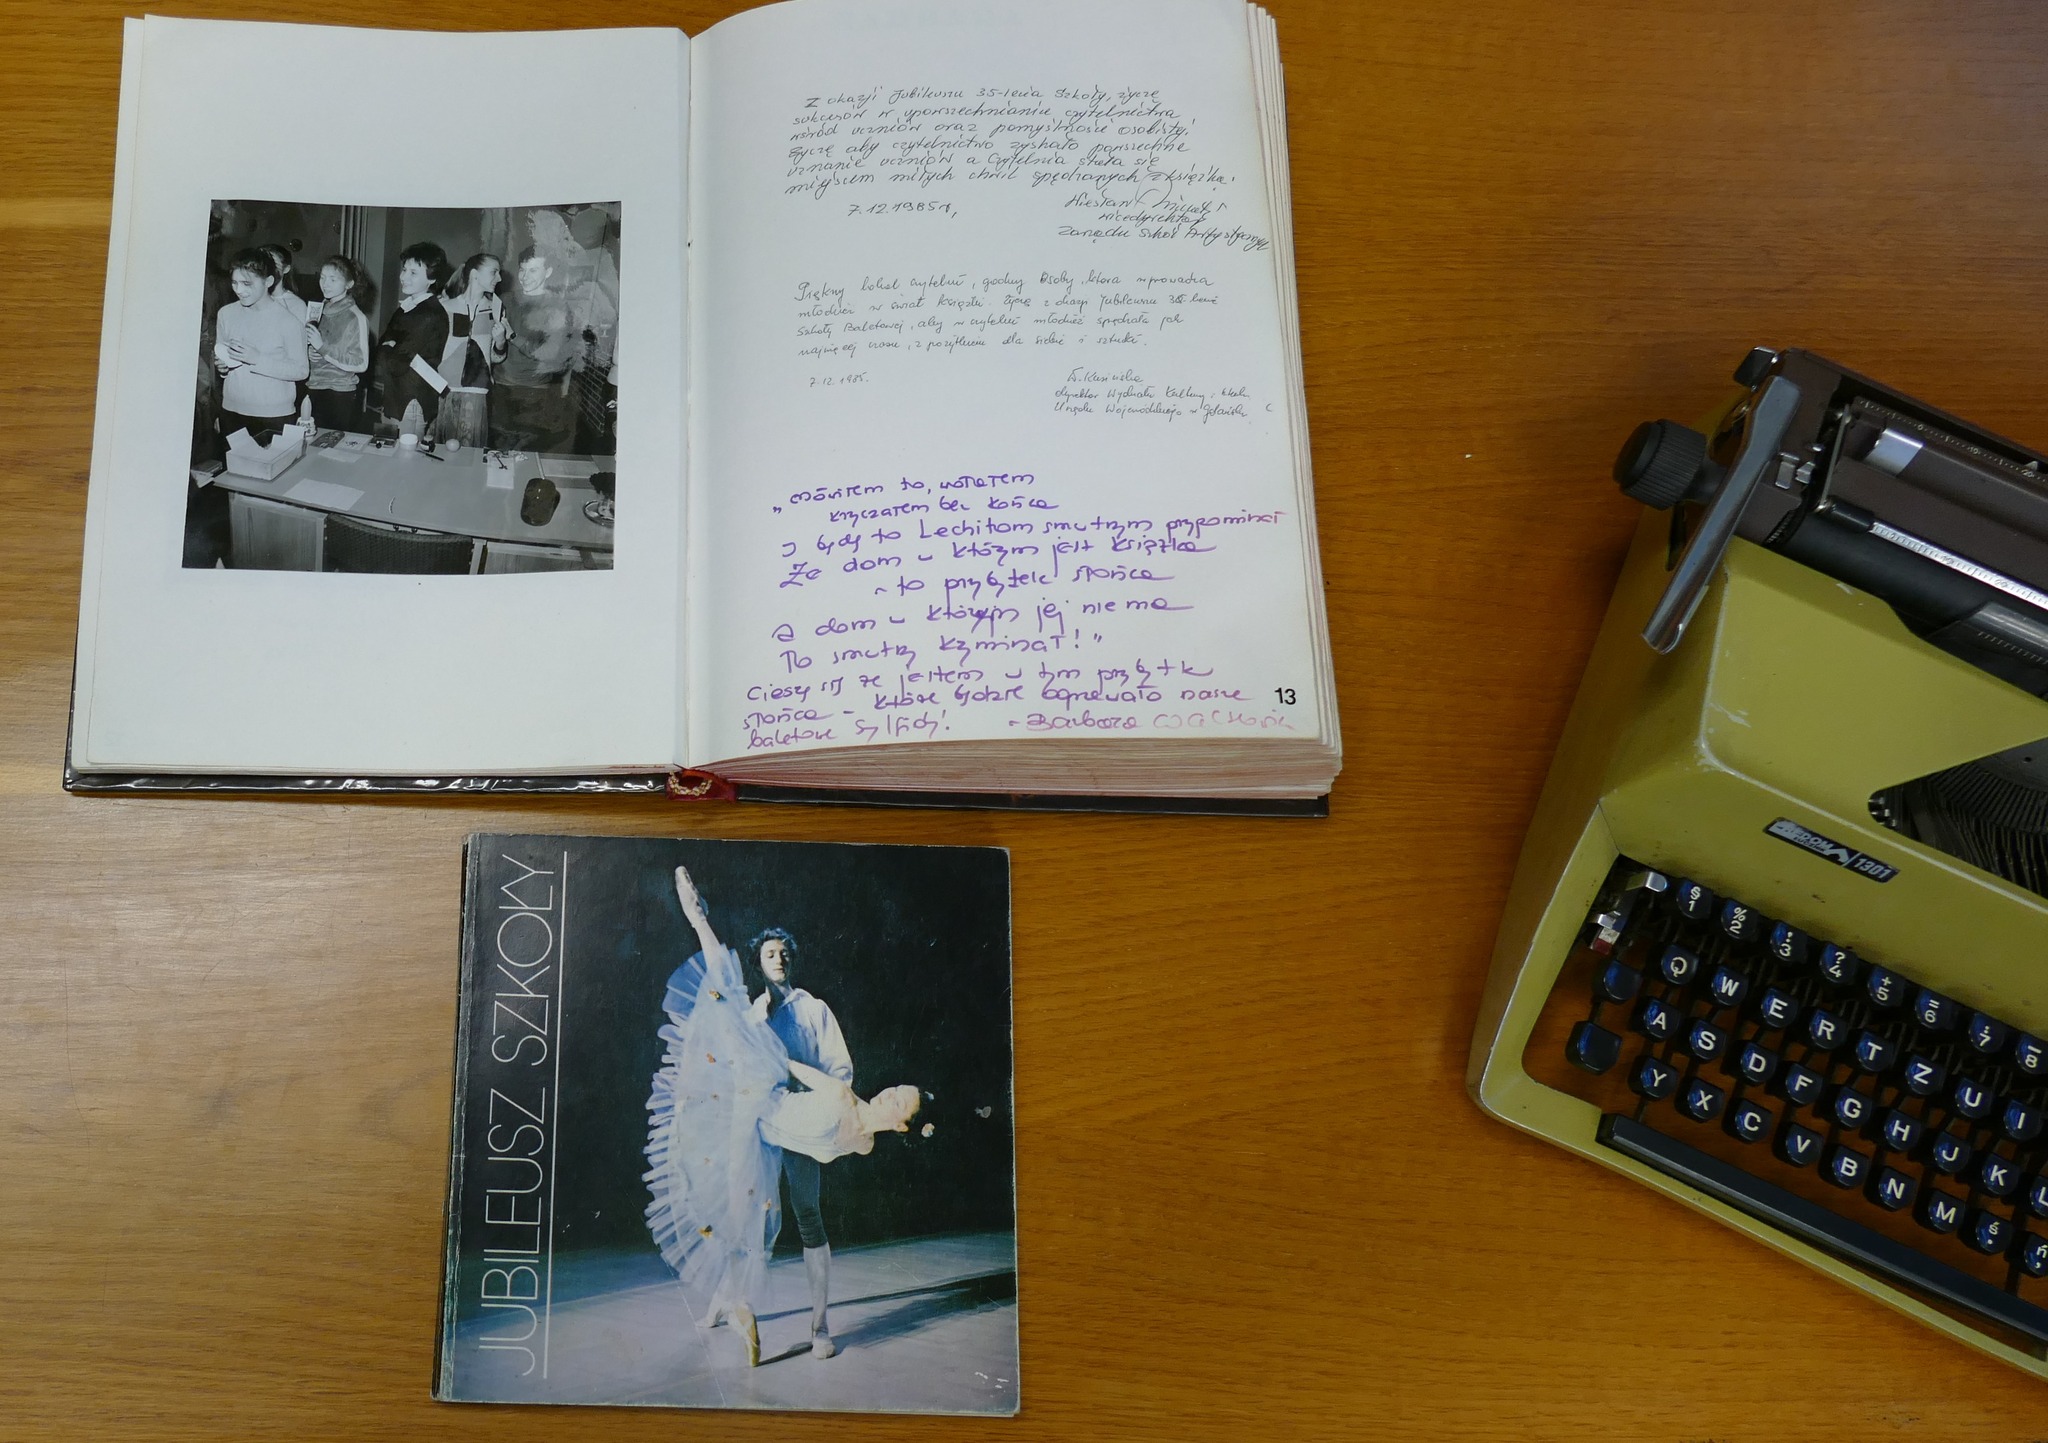 Z okazji Jubileuszu 35-lecia Szkoły, życzę
sukcesów w upowszechnianiu czytelnictwa
wśród uczniów oraz pomyślności osobistej.
Życzę aby czytelnictwo zyskało powszechne
uznanie uczniów a Czytelnia stała się
miejscem miłych chwil spędzanych z książką.
7.12.1985r,
Wiesław
wicedyrektor
Zarządu Szkół Artystycznych
Piękny lokal czytelni, godny Osoby, która wprowadza
młodzież w świat książki. Życzę z okazji Jubileuszu 35-lecia
Szkoły Baletowej, aby w czytelni młodzież spędzała jak
najwięcej czasu, z pożytkiem dla siebie i sztuki.
7.12.1985.
dyrektor Wydziału Kultury i Sztuki
Urzędu Wojewódzkiego w Gdańsku
„mówiłem to, wołałem
krzyczałem bez końca
I będę to Lechitom smutnym przypominał
Że dom w którym jest książka
- to przybytek słońca
A dom w którym jej nie ma
To smutny kryminał!"
Cieszę się że jestem w tym przybytku
słońca - które będzie ogrzewało nasze
baletowe sylfidy! - Barbara
13
JUBILEUSZ SZKOŁY
PREDOM
1301
§ % : ? + = ; _
1 2 3 4 5 6 7 8
Q W E R T Z U I
A S D F G H J K L
Y X C V B N M ś